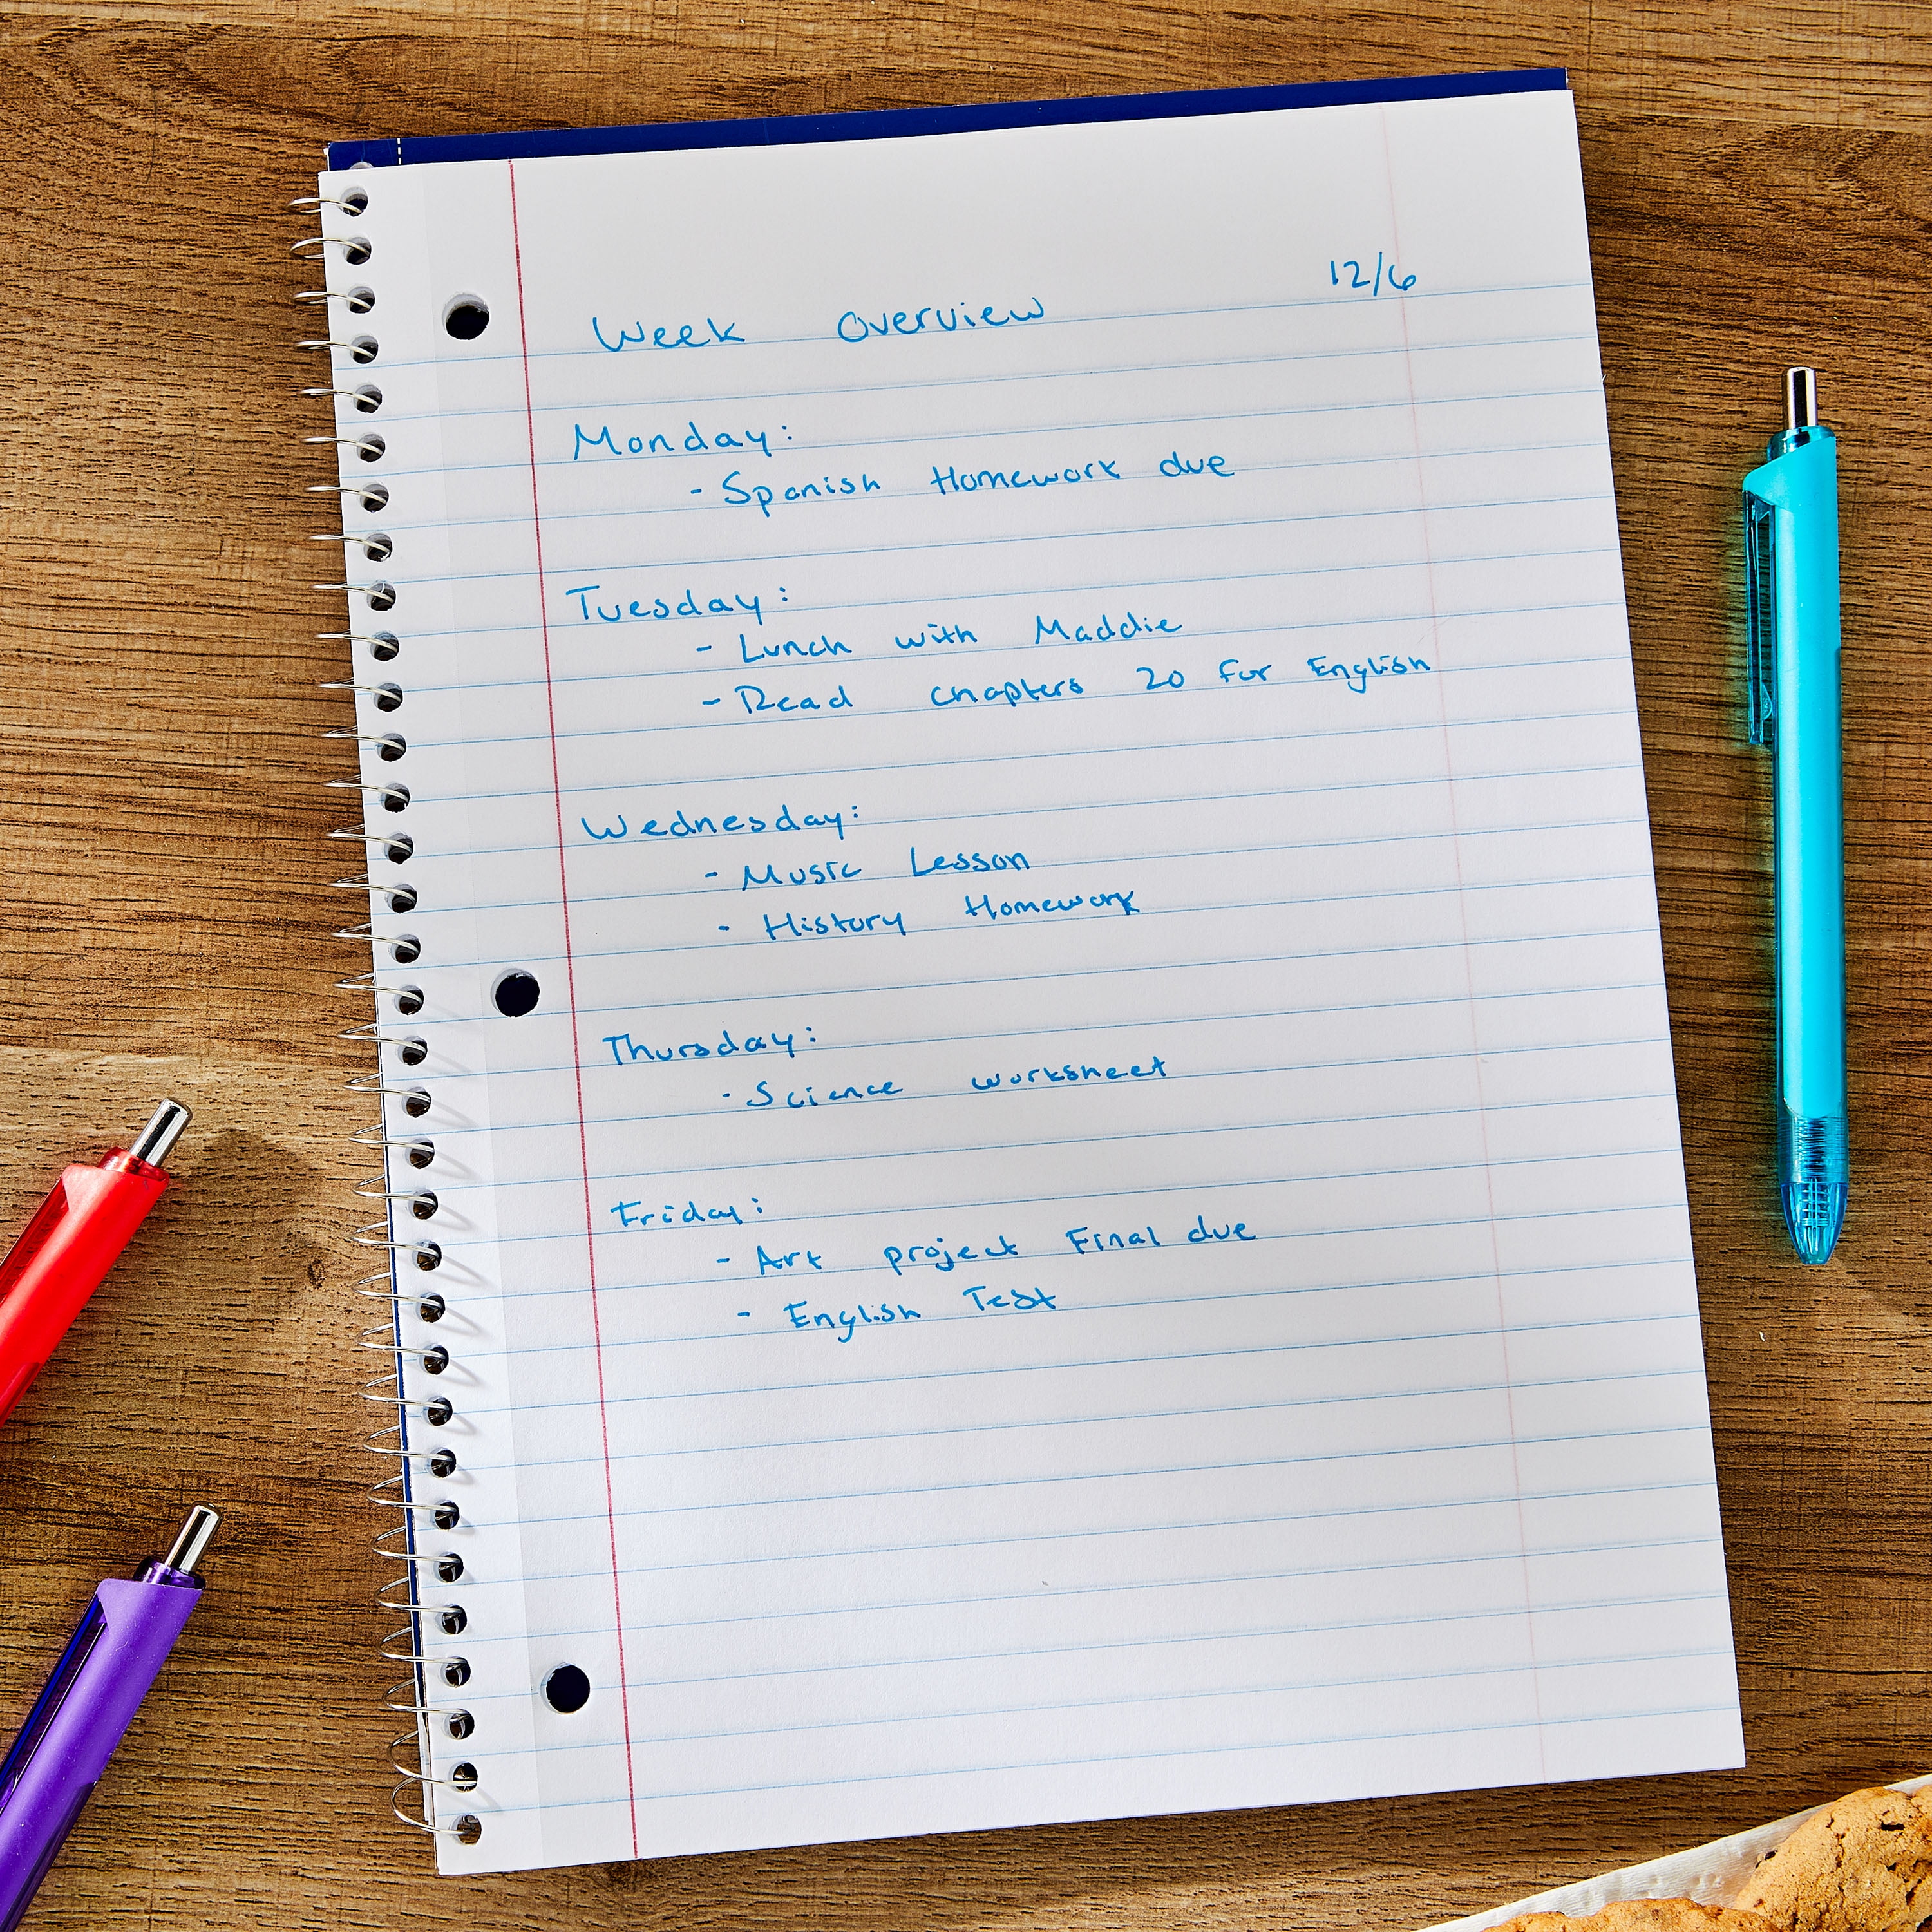 12/6
Week Overview
Monday:
- Spanish Homework due
Tuesday:
- Lunch with Maddie
- Read chapters 20 for English
Wednesday:
- Music Lesson
- History Homework
Thursday:
- Science worksheet
Friday:
- Art project Final due
- English Test